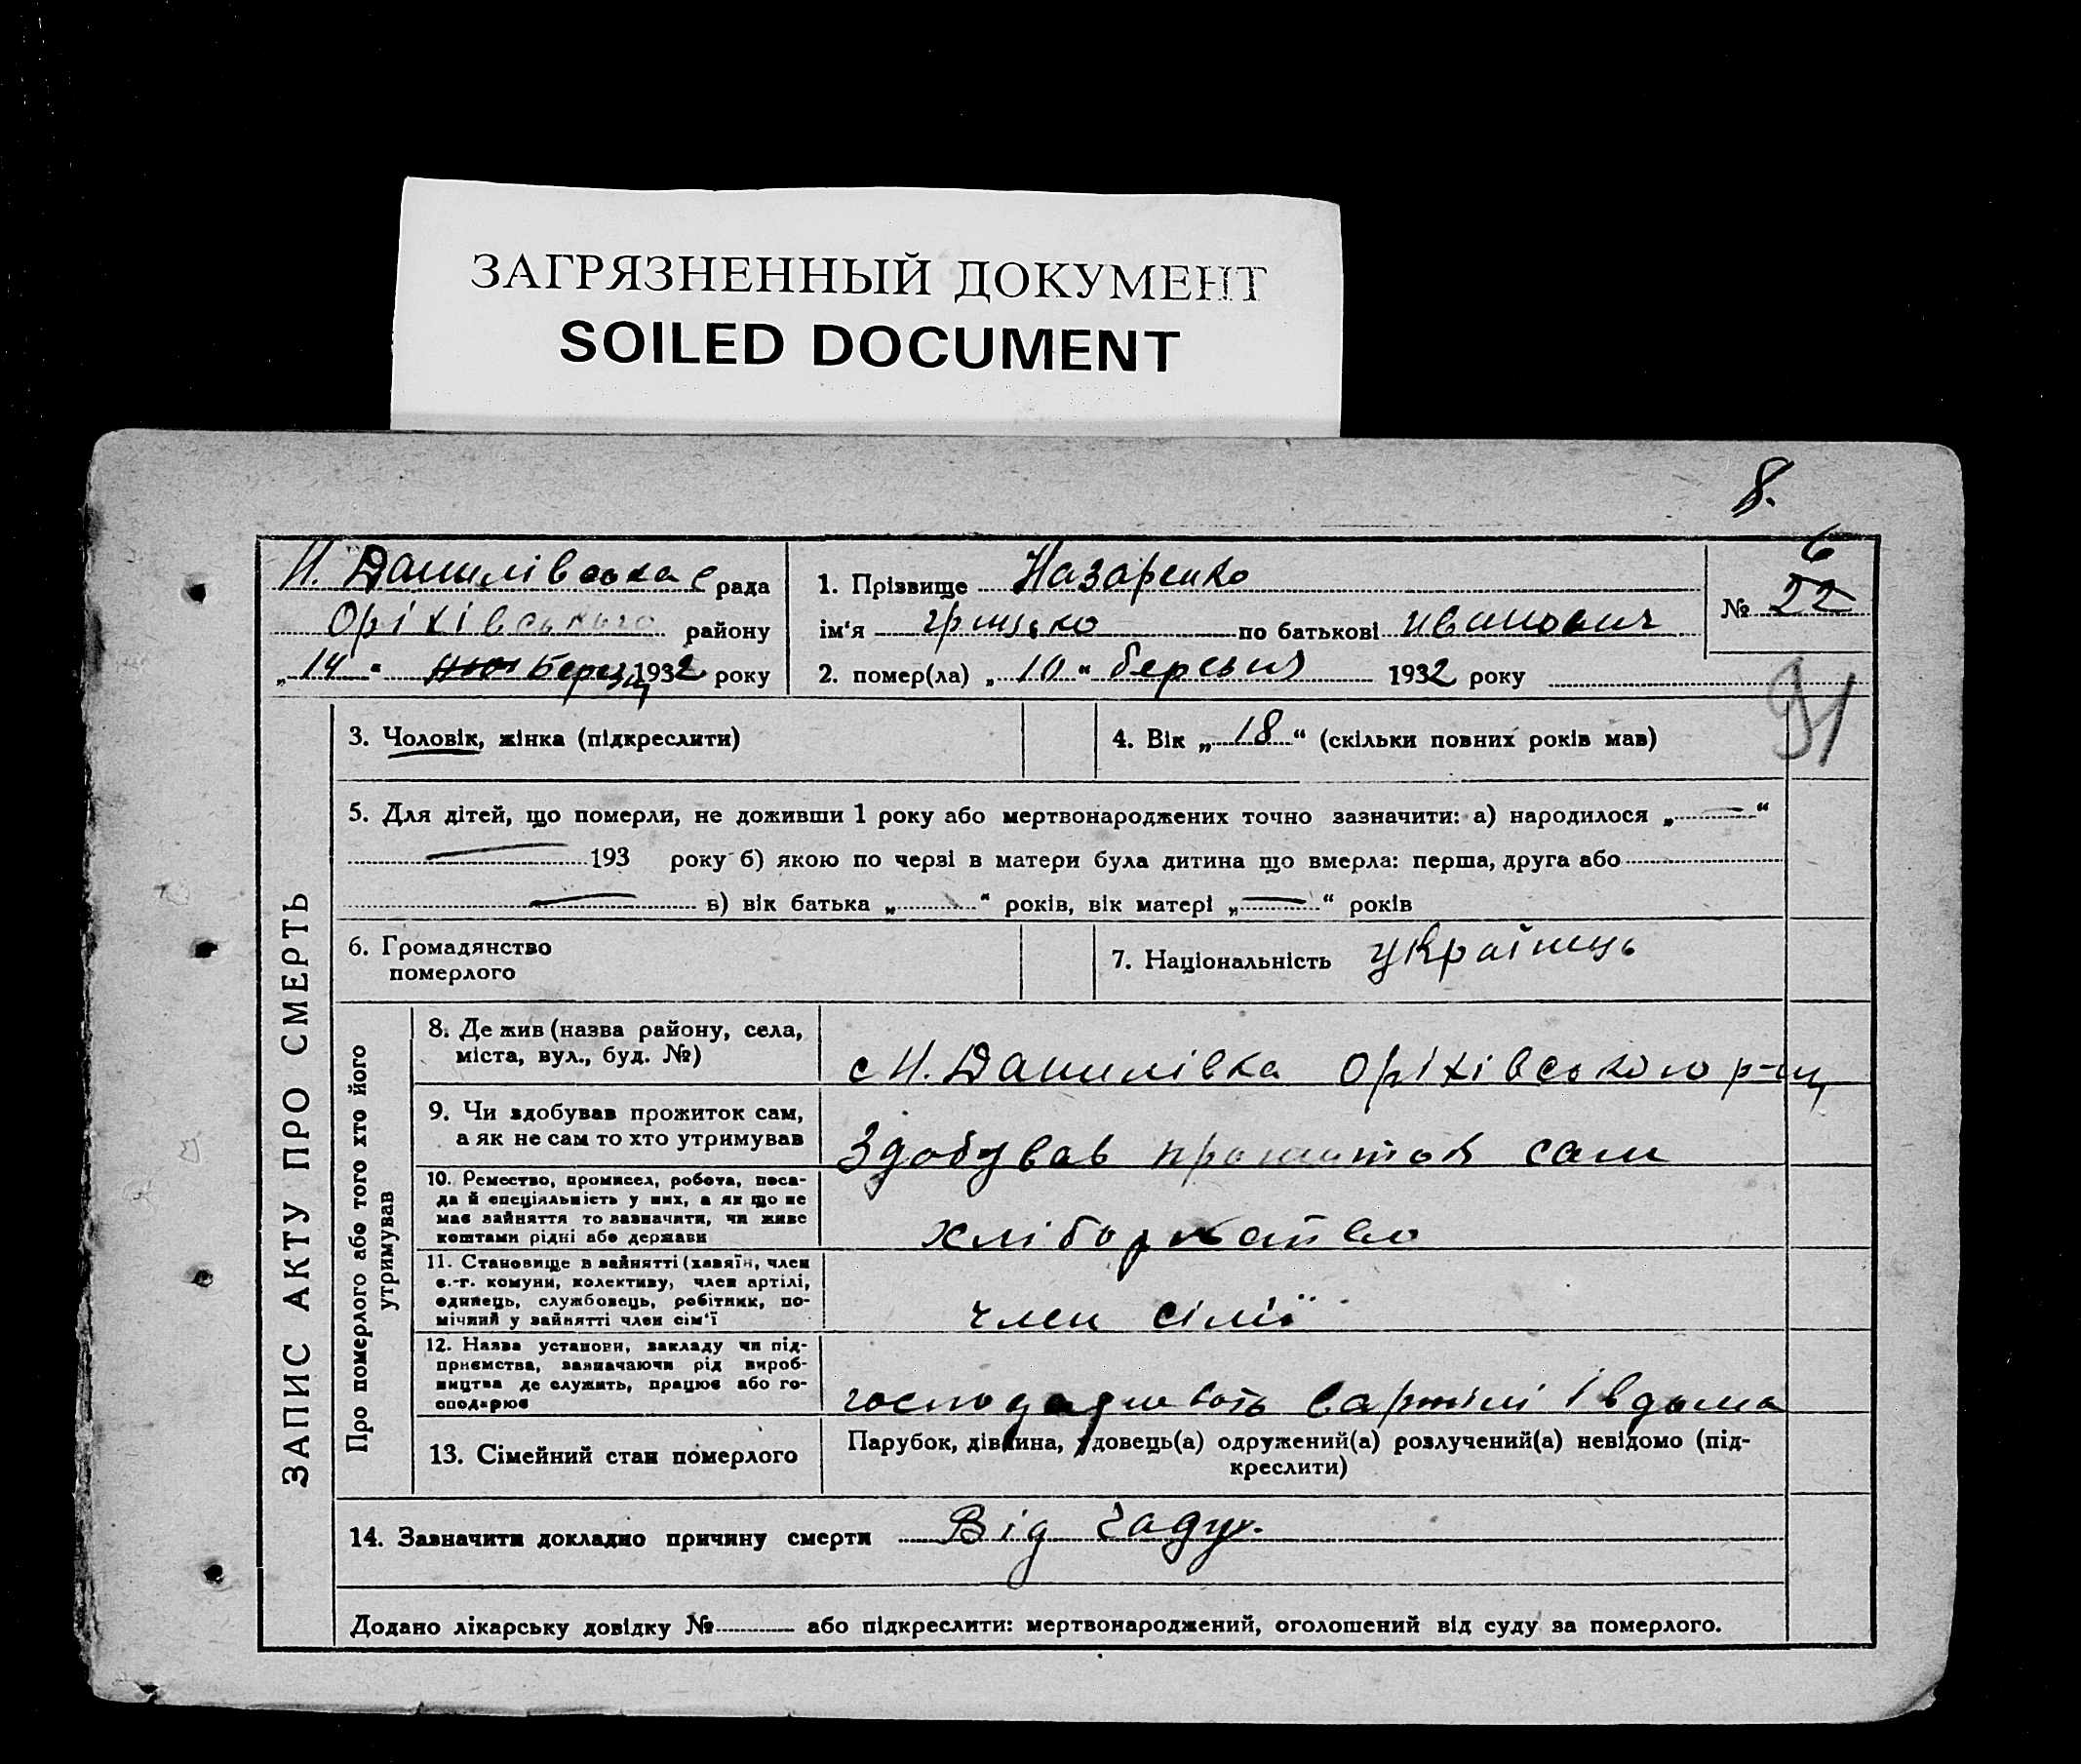 ЗАГРЯЗНЕННЫЙ ДОКУМЕНТ
SOILED DOCUMENT
8.
Н. Данилівська с рада
Оріхівського району
„ 14 “ Берез 1932 року
1. Прізвище Назаренко
ім'я грицько по батькові иванович
2. помер(ла) „ 10 “ березня 1932 року
6
№ 22
91
ЗАПИС АКТУ ПРО СМЕРТЬ
3. Чоловік, жінка (підкреслити)
4. Вік „ 18 “ (скільки повних років мав)
5. Для дітей, що померли, не доживши 1 року або мертвонароджених точно зазначити: а) народилося „ — “
— 193 року б) якою по черзі в матери була дитина що вмерла: перша, друга або
— в) вік батька „ “ років, вік матері „ — “ років
6. Громадянство
померлого
7. Національність українець
Про померлого або того хто його
утримував
8. Де жив (назва району, села,
міста, вул., буд. №)
с Н. Данилівка Оріхівського р-ну
9. Чи здобував прожиток сам,
а як не сам то хто утримував
Здобував прожиток сам
10. Ремество, промисел, робота, поса-
да й спеціяльність у них, а як що не
має зайняття то зазначити, чи живе
коштами рідні або держави
хліборобство
11. Становище в зайнятті (хазяїн, член
с.-г. комуни, колективу, член артілі,
одинець, службовець, робітник, по-
мічний у зайнятті член сім'ї
член сімії
12. Назва установи, закладу чи під-
приємства, зазначаючи рід вироб-
ництва де служить, працює або го-
сподарює
вартілі
13. Сімейний стан померлого
Парубок, дівчина, удовець(а) одружений(а) розлучений(а) невідомо (під-
креслити)
14. Зазначити докладно причину смерти Від чаду.
Додано лікарську довідку № або підкреслити: мертвонароджений, оголошений від суду за померлого.